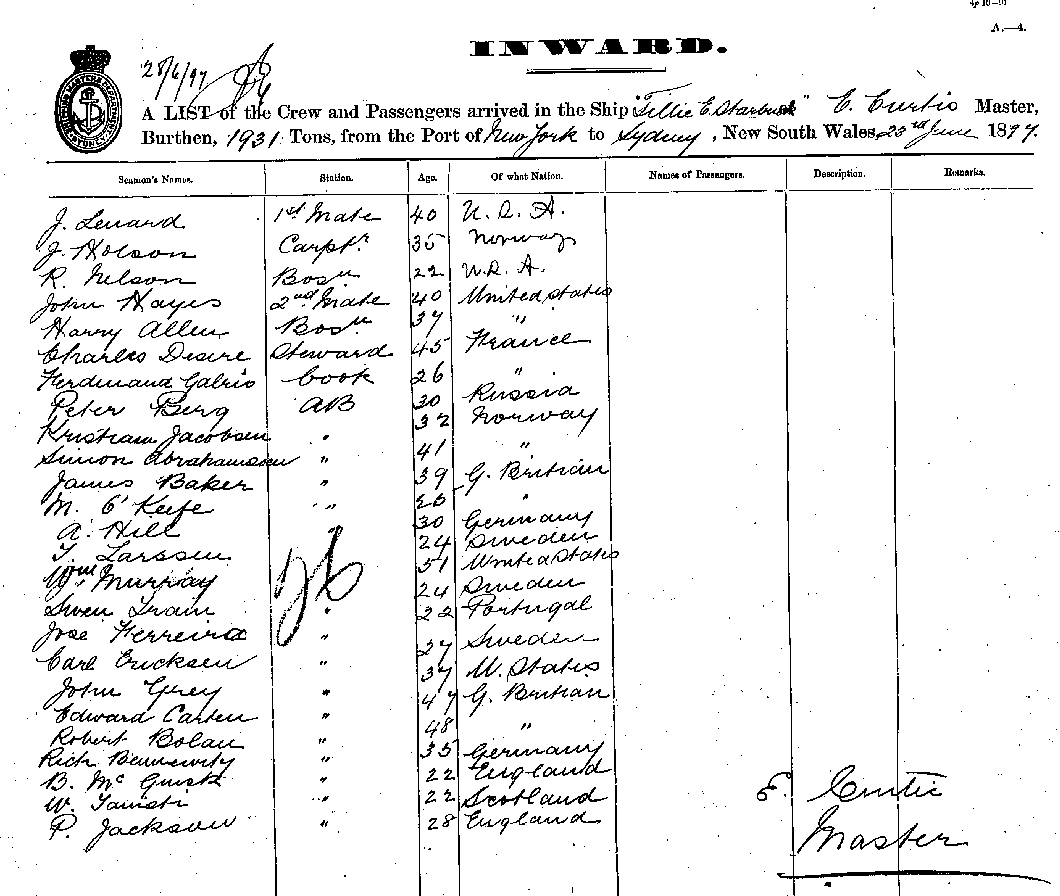 A.—4.
INWARD.
28/6/97
A LIST of the Crew and Passengers arrived in the Ship "Tillie E. Starbuck" E. Curtis Master,
Burthen, 1931 Tons, from the Port of New York to Sydney, New South Wales, 23rd June 1897.
Seamen's Names. Station. Age. Of what Nation. Names of Passengers. Description. Remarks.
J. Lenard 1st Mate 40 U.S.A.
J. Holson Carptr 35 Norway
R. Nelson Bosn 22 U.S.A.
John Hayes 2nd Mate 40 United States
Harry Allen Bosn 37 "
Charles Desire Steward 45 France
Ferdinand Galrio Cook 26 "
Peter Berg AB 30 Russia
Kristham Jacobsen " 32 Norway
Simon Abrahamsen " 41 "
James Baker " 39 G. Britian
M. O'Keefe " 26 "
A. Hill " 30 Germany
T. Larssen 24 Sweden
Wm. Murray 51 United States
Swen Train " 24 Sweden
Jose Ferreira " 22 Portugal
Carl Ericksen " 27 Sweden
John Grey " 37 U. States
Edward Carten " 47 G. Britian
Robert Bolan " 48 "
Rich " 35 Germany
B. Mc " 22 England
W. " 22 Scotland
P. Jackson " 28 England
E. Curtis
Master